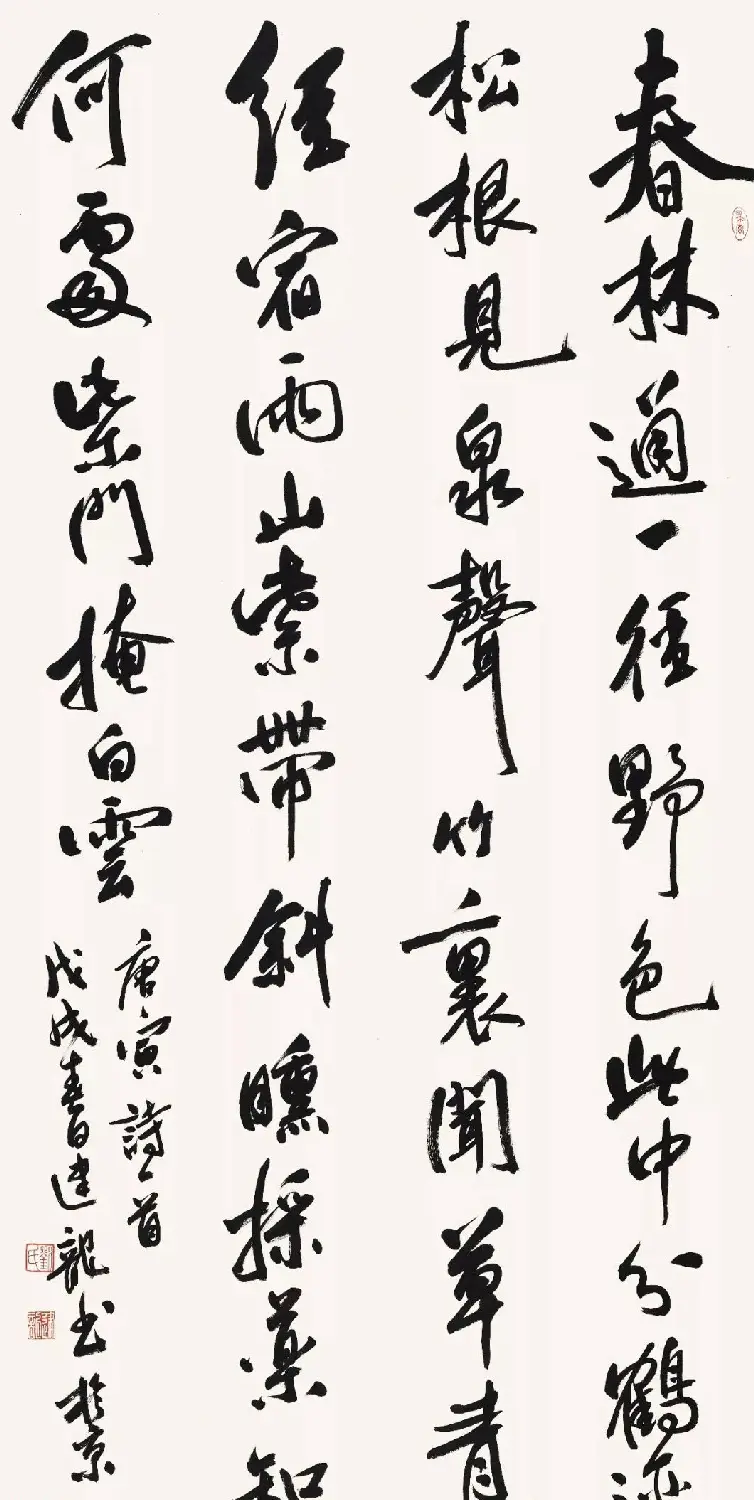 春林通一徑野色此中分鶴迹
松根見泉聲竹裏聞草青
經宿雨山紫帶斜曛採藥知
何處柴門掩白雲
唐寅詩一首
戊戌春日建龍书於京